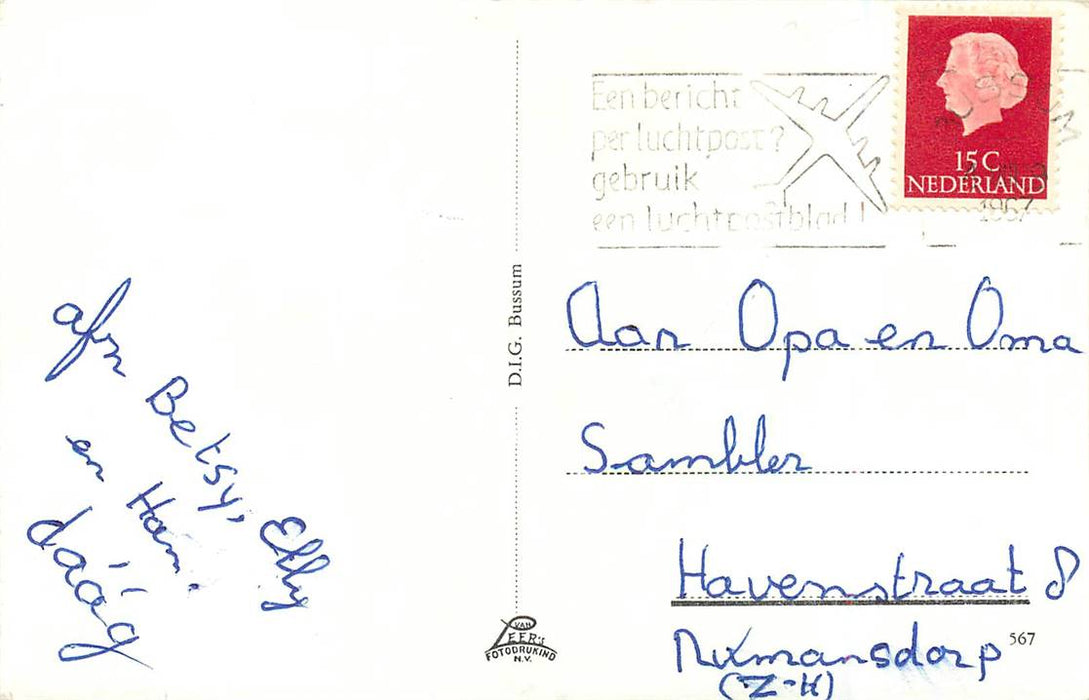 Een bericht
per luchtpost?
gebruik
een luchtpostblad!
BUSSUM
1967
15 C
NEDERLAND
afz
Betsy, Elly
en Han.
dááág
D.I.G. Bussum
VAN
LEER's
FOTODRUKIND
N.V.
Aan Opa en Oma
Sambler
Havenstraat 8
Numansdorp
(Z-H)
567